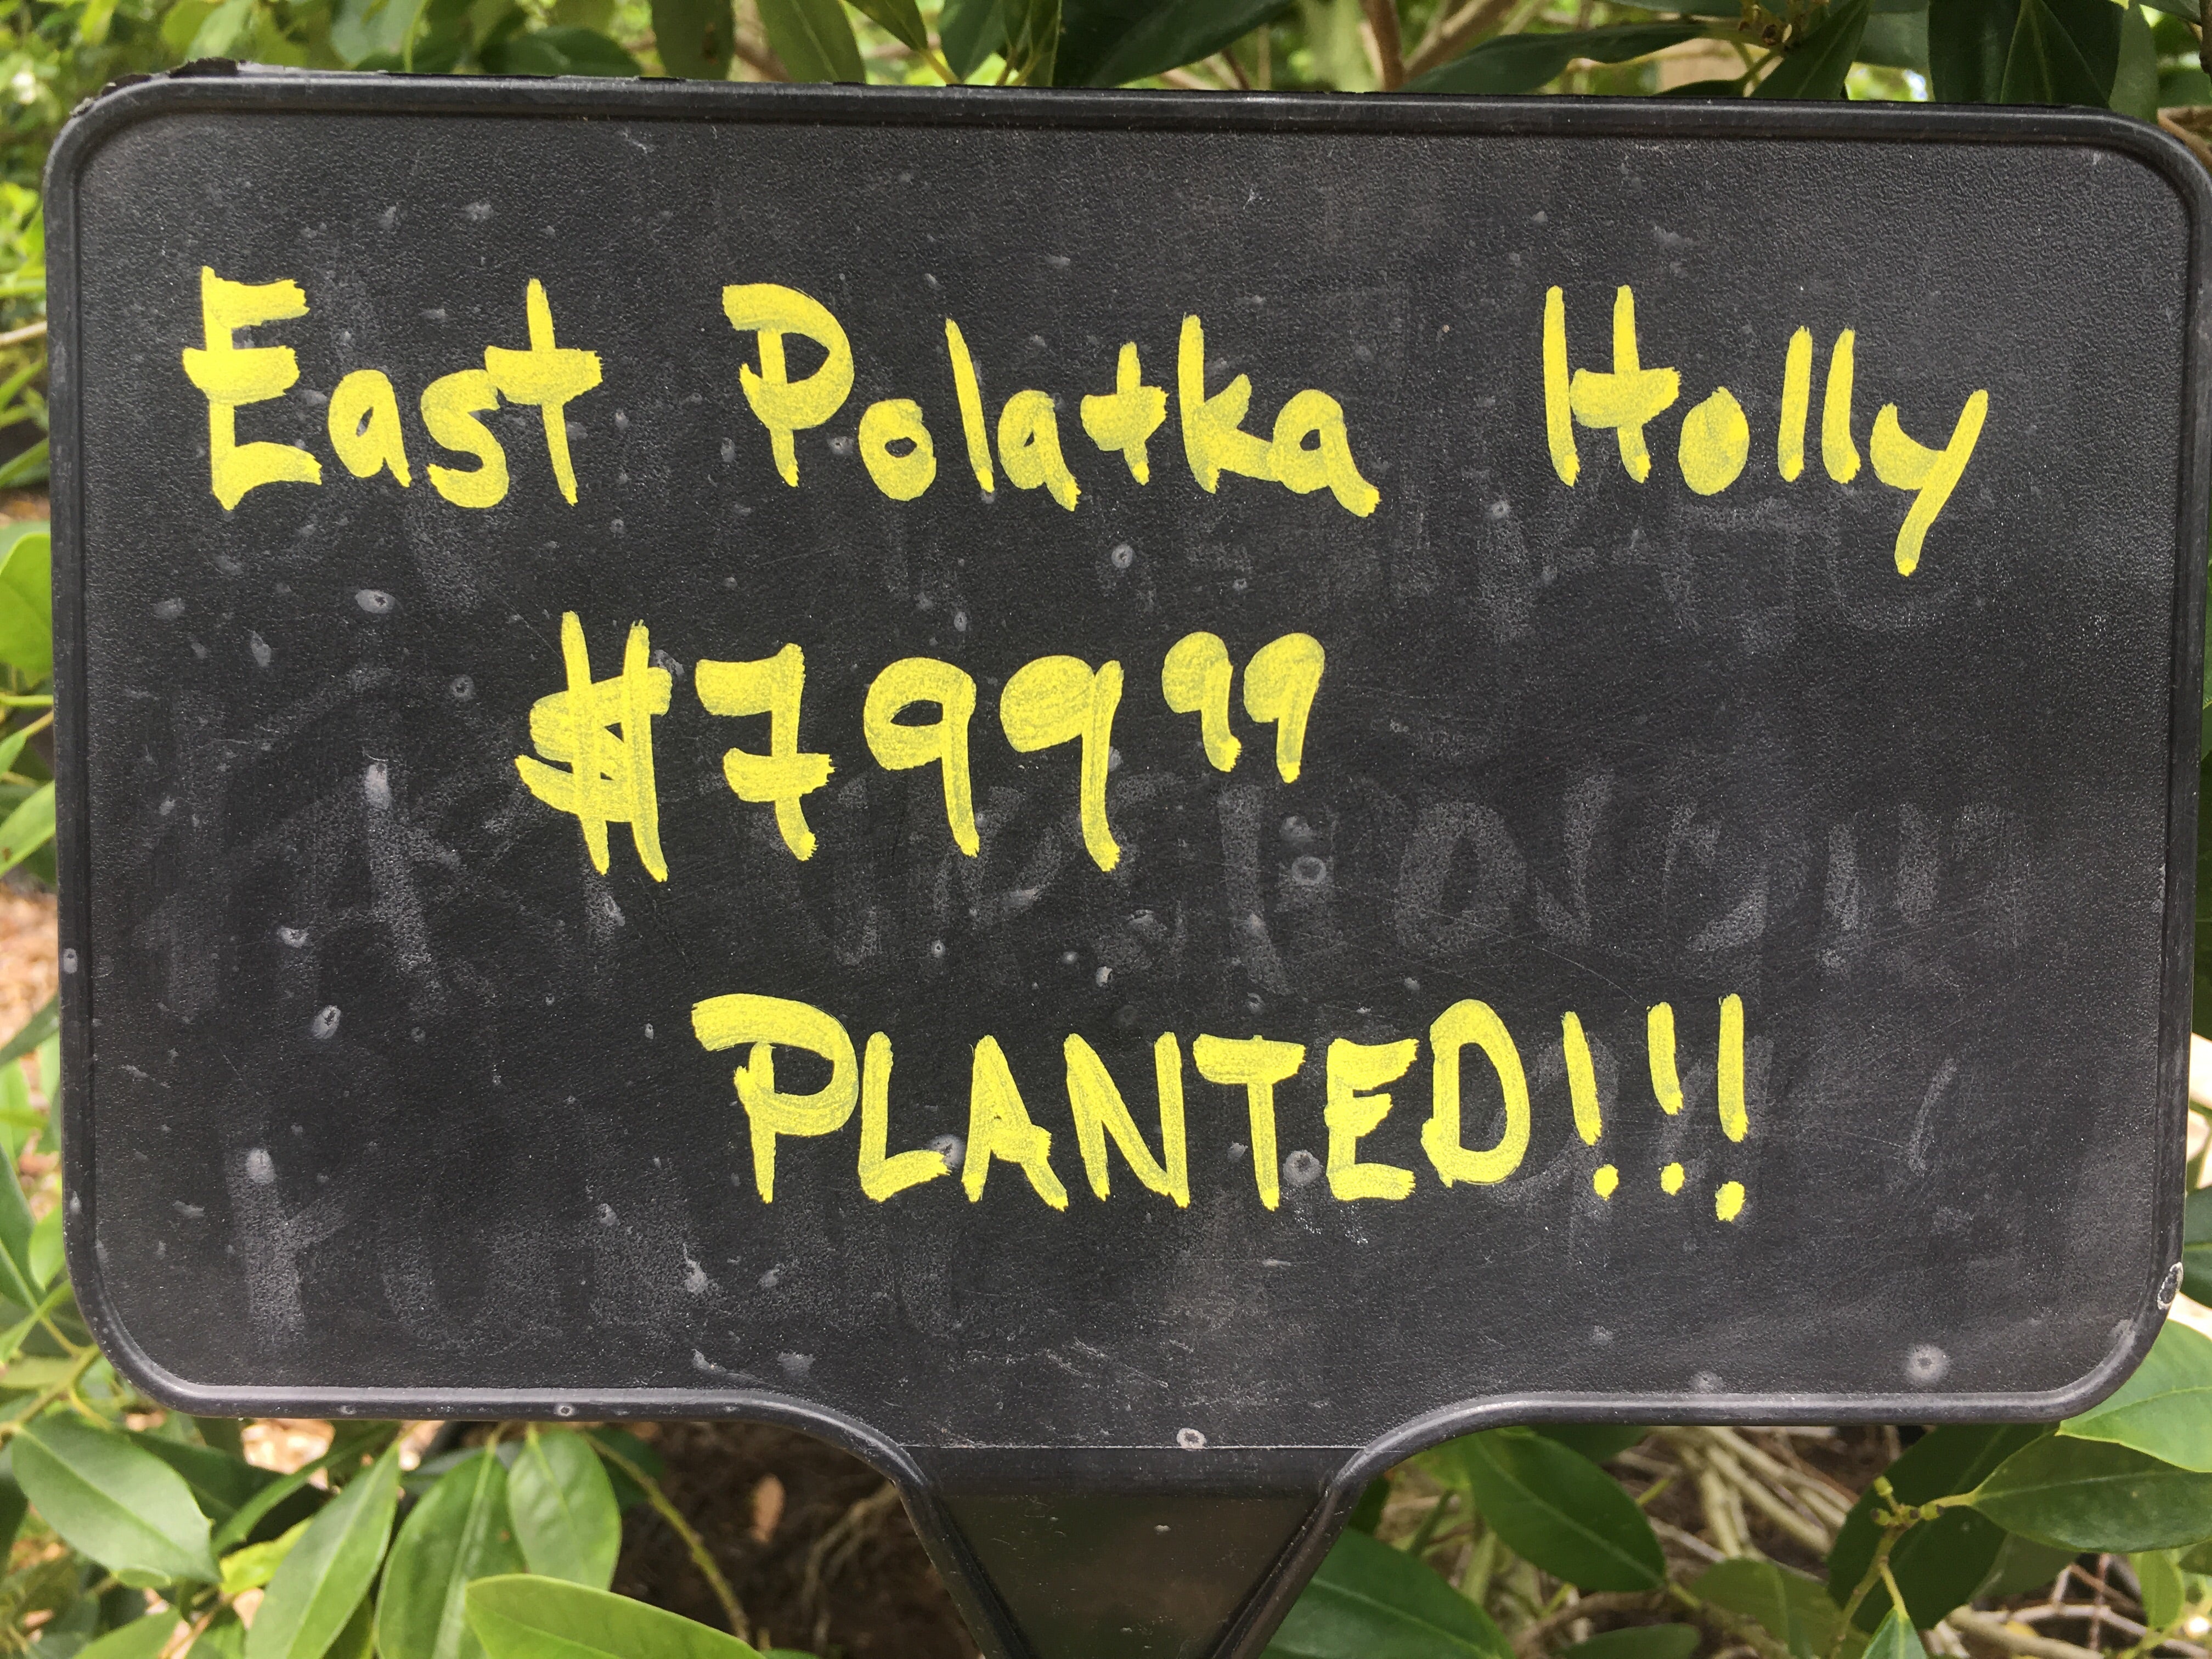 East Polatka Holly
$799 99
PLANTED!!!